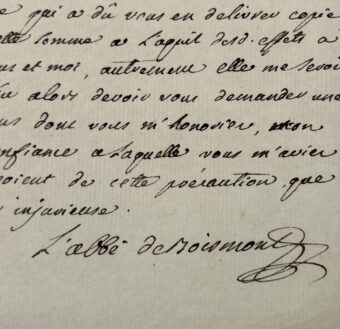 qui a dû vous en delivrer copie
elle somme a l'aquit desd. effets a
et moi, autrement elle me seroit
alors devoir vous demander une
dont vous m'honorier, mon
confiance a laquelle vous m'avier
soient de cette précaution, que
injurieuse.
L'abbé de Boismont